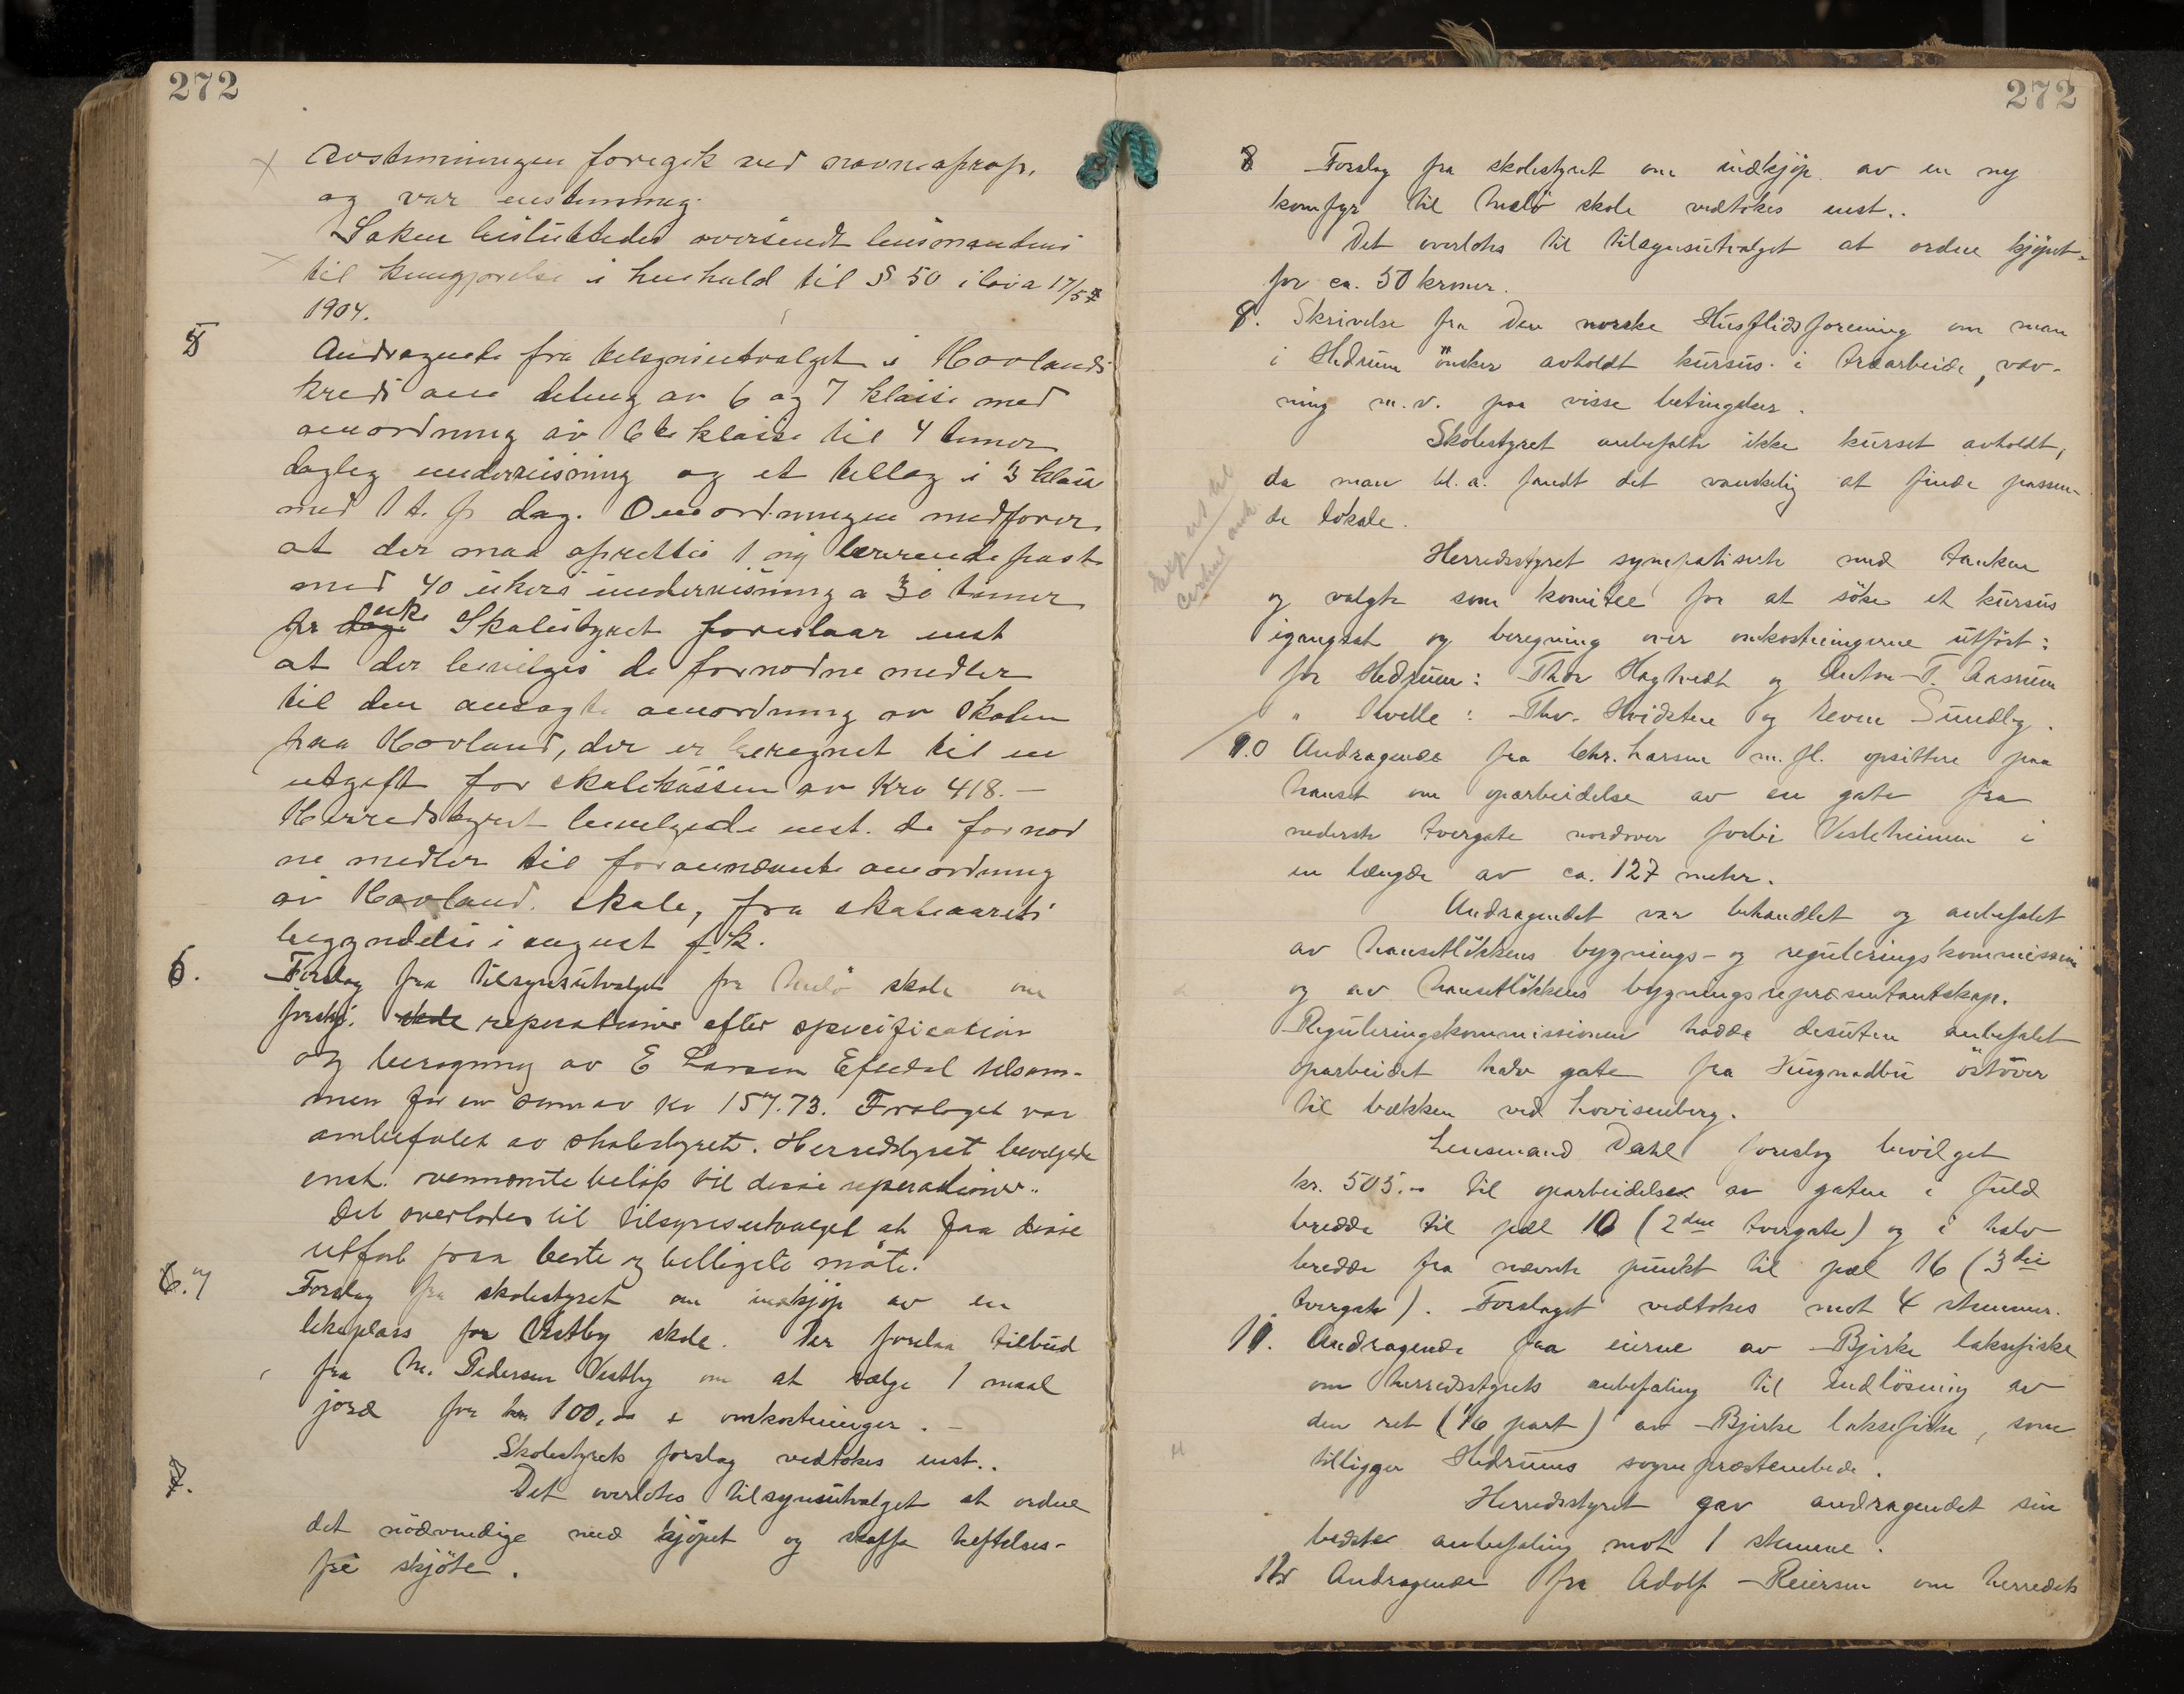 272
Avstemningen foregik ved navneoprop,
og var enstemmig.
Saken besluttedes oversendt lensmanden
til kungjørelse i henhold til § 50 i lov a 17/5
1904.
5 Andragende fra tilsynsutvalget i Hovlands
kreds om deling av 6 og 7 klasse med
omordning av 6te klasse til 4 timer
daglig undervisning og et tillæg i 3 klasse
med 1 t. pr dag. Omordningen medfører
at der maa oprettes 1 ny lærerinde post
med 40 ukers undervisning a 30 timer
pr uke Skolestyret foreslaar enst
at der bevilges de fornødne midler
til den ansøgte omordning av skolen
paa Hovland, der er beregnet til en
utgift for skolekassen av Kro 418.–
Herredstyret bevilgede enst. de fornød
ne midler til forannævnte omordning
av Hovland skole, fra skoleaarets
begyndelse i august f.k.
6. Forslag fra tilsynsutvalget for Melö skole om
forskj. reperationer efter specification
og beregning av E Larsen Efledal tilsam-
men for en sum av kr 157.73. Forslaget var
anbefalet av skolestyret. Herredstyret bevilgede
enst. nevnnte beløp til disse reperationer.
Det overlodes til tilsynsutvalget at faa disse
utført paa beste og billigste måte.
7 Forslag fra skolestyret om indkjøp av en
lekeplass for Vestby skole. Der forelaa tilbud
fra M. Pedersen Vestby om at sælge 1 maal
jord for kr. 100,00 + omkostninger. –
Skolestyrets forslag vedtokes enst..
Det overlotes tilsynsutvalget at ordne
det nödvendige med kjöpet og skaffe heftelses-
fri skjöte.
272
8 Forslag fra skolestyret om indkjöp av en ny
komfyr til Melö skole vedtokes enst..
Det overlotes til tilsynsutvalget at ordne kjöpet
for ca. 50 kroner.
9. Skrivelse fra Den norske Husflidsforening om man
i Hedrum önsker avholdt kursus i træarbeide, væv-
ning m.v. paa visse betingelser.
Skolestyret anbefalte ikke kurset avholdt,
da man bl.a. fandt det vanskelig at finde passen-
de lokale.
Herredsstyret sympatiserte med tanken
og valgte som komitee for at söke et kursus
igangsat og beregning over omkostningerne utfört:
for Hedrum: Thor Hagtvedt og Anton T. Aasrum
" Kvelle: Thv. Hvidsten og Even Sundby.
10 Andragende fra Chr. Larsen m.fl. opsittere paa
Hauset om oparbeidelse av en gate fra
nederste tvergate nordover forbi Vesleheimen i
en længde av ca. 127 meter.
Andragendet var behandlet og anbefalet
av Hausetlökkens bygnings- og reguleringskommission
og av Hausetlökkens bygningsrepræsentantskap.
Reguleringskommissionen hadde desuten anbefalet
oparbeidet halv gate fra Hugnadbu östöver
til bækken ved Lovisenberg.
Lensmand Dahl foreslog bevilget
kr. 505.– til oparbeidelse av gaten i fuld
bredde til pæl 10 (2den tvergate) og i halv
bredde fra nævnte punkt til pæl 16 (3die
tvergate). Forslaget vedtokes mot 4 stemmer.
11. Andragende fra eierne av Bjerke laksefiske
om herredsstyrets anbefaling til indlösning av
den ret (1/6 part) av Bjerke laksefiske, som
tilligger Hedrums sogneprestembede.
Herredsstyret gav andragendet sin
bedste anbefaling mot 1 stemme.
12 Andragende fra Adolf Reiersen om herredets